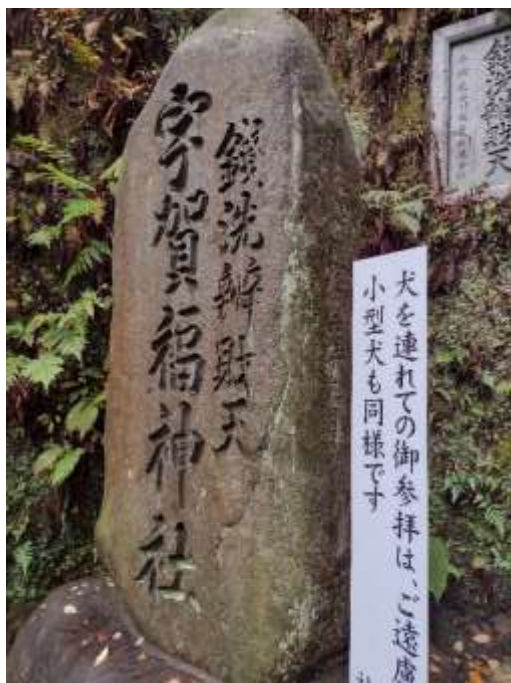 銭洗辨財天
宇賀福神社
犬を連れての御参拝は、ご遠慮
小型犬も同様です
社
銭洗辨財天